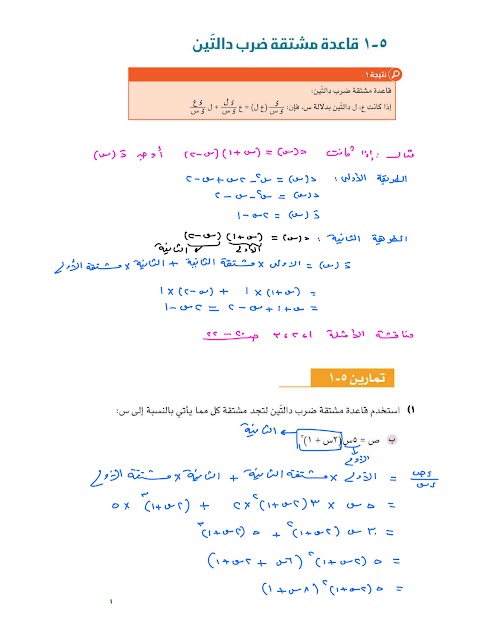 ٥-١ قاعدة مشتقة ضرب دالتَين
نتيجة ١
قاعدة مشتقة ضرب دالتَين:
إذا كانت ع، ل دالتَين بدلالة س، فإن: ء/ءس (ع ل) = ع ءل/ءس + ل ءع/ءس
مثال: إذا كانت د(س) = (س+١)(س-٢) أوجد دَ(س)
الطريقة الأولى: د(س) = س² - ٢س + س - ٢
د(س) = س² - س - ٢
دَ(س) = ٢س - ١
الطريقة الثانية: د(س) = (س+١)(س-٢)
الأولى الثانية
دَ(س) = الأولى × مشتقة الثانية + الثانية × مشتقة الأولى
= (س+١) × ١ + (س-٢) × ١
= س + ١ + س - ٢ = ٢س - ١
مناقشة الأمثلة ١، ٢، ٣ ص ٢٠ - ٢٢
تمارين ٥-١
١) استخدم قاعدة مشتقة ضرب دالتَين لتجد مشتقة كل مما يأتي بالنسبة إلى س:
الثانية
ب ص = ٥س(٢س + ١)³
الأولى
ءص/ءس = الأولى × مشتقة الثانية + الثانية × مشتقة الأولى
= ٥س × ٣(٢س+١)² × ٢ + (٢س+١)³ × ٥
= ٣٠س (٢س+١)² + ٥(٢س+١)³
= ٥(٢س+١)² (٦س + ٢س + ١)
= ٥(٢س+١)² (٨س+١)
١